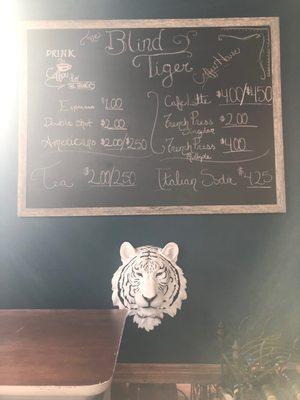 The Blind
Tiger
Coffee House
DRINK
Coffee
Espresso $1.00
Double Shot $2.00
Americano $2.00/$2.50
Tea $2.00/2.50
Cafe Latte $4.00/$4.50
French Press $2.00
Singular
French Press $4.00
Multiple
Italian Soda $4.25